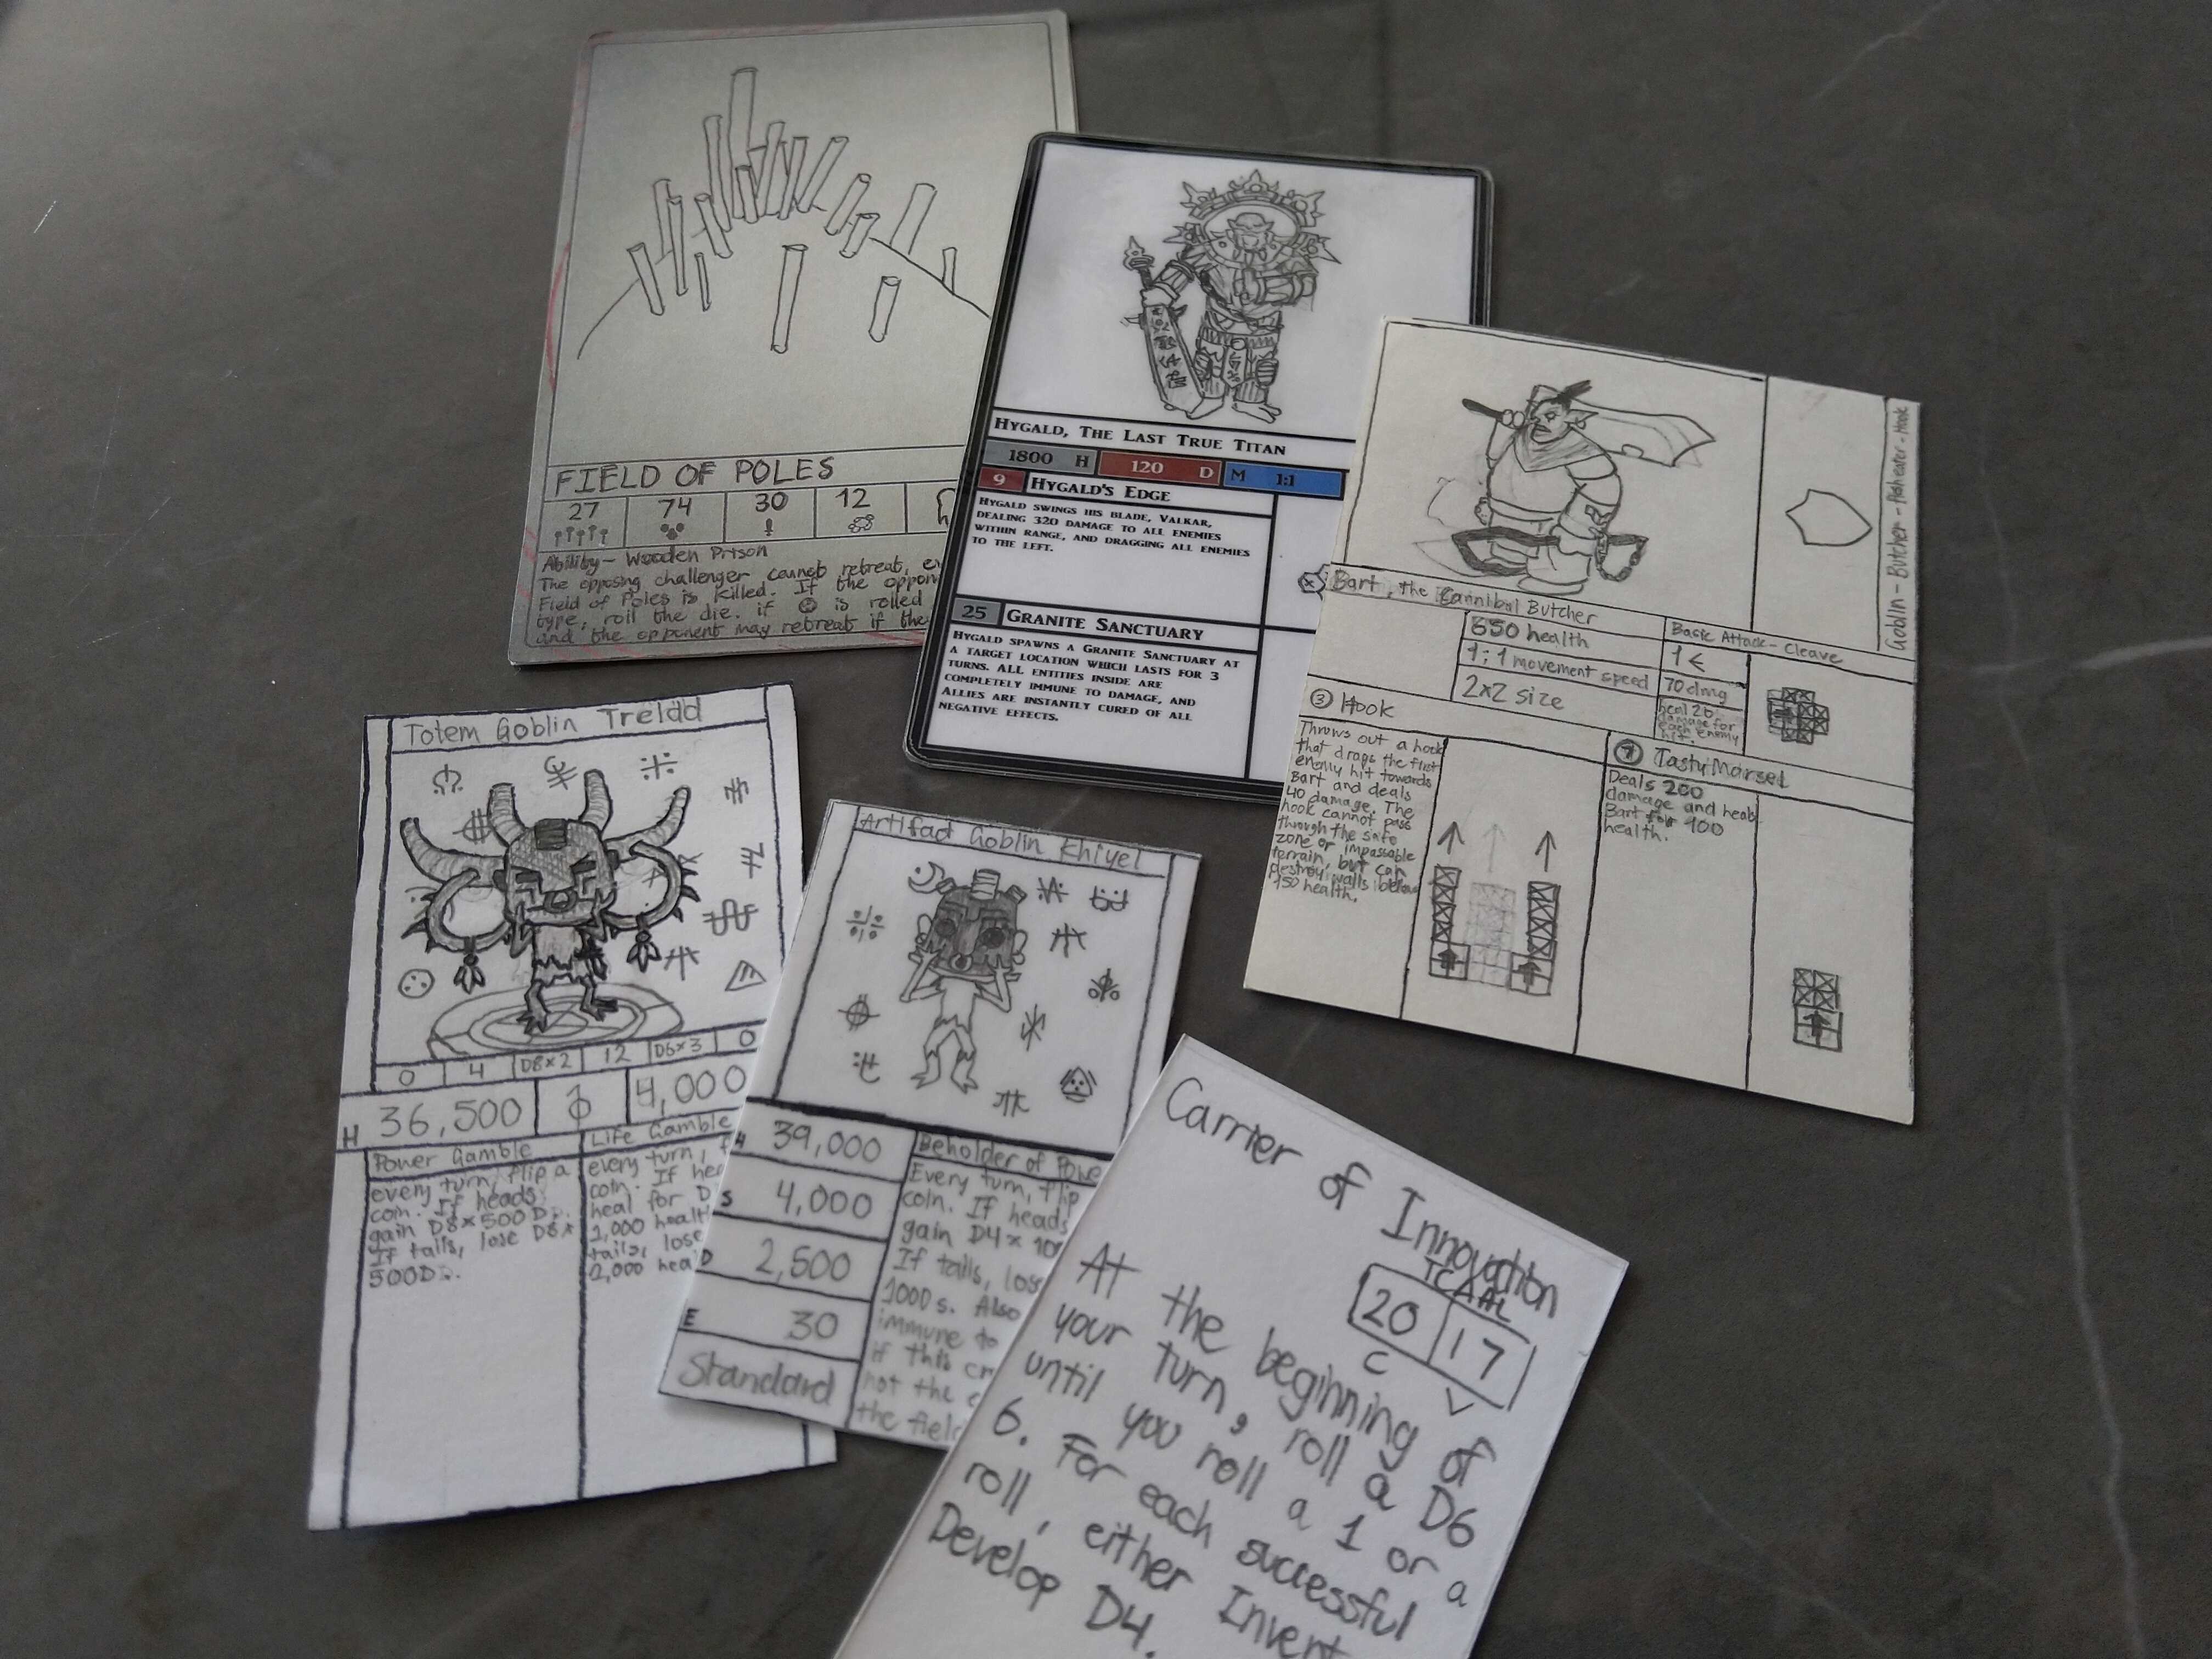 FIELD OF POLES
27 74 30 12
Ability - Wooden Prison
The opposing challenger cannot retreat,
Field of Poles is killed. If the
type, roll the die. if is rolled
and the opponent may retreat if the
HYGALD, THE LAST TRUE TITAN
1800 H 120 D M 1:1
9 HYGALD'S EDGE
HYGALD SWINGS HIS BLADE, VALKAR,
DEALING 320 DAMAGE TO ALL ENEMIES
WITHIN RANGE, AND DRAGGING ALL ENEMIES
TO THE LEFT.
25 GRANITE SANCTUARY
HYGALD SPAWNS A GRANITE SANCTUARY AT
A TARGET LOCATION WHICH LASTS FOR 3
TURNS. ALL ENTITIES INSIDE ARE
COMPLETELY IMMUNE TO DAMAGE, AND
ALLIES ARE INSTANTLY CURED OF ALL
NEGATIVE EFFECTS.
Goblin - Butcher - Flesheater - Hook
Bart, the Cannibal Butcher
650 health
1:1 movement speed
2x2 size
Basic Attack - Cleave
1 €
70 dmg
heal 20
damage for
each enemy
hit.
3 Hook
Throws out a hook
that drags the first
enemy hit towards
Bart and deals
40 damage. The
hook cannot pass
through the safe
zone or impassable
terrain, but can
destroy walls below
150 health.
Tasty Morsel
Deals 200
damage and heals
Bart for 100
health.
Totem Goblin Treldd
0 4 D8x2 12 D6x3 0
H 36,500 4,000
Power Gamble
every turn, flip a
coin. If heads,
gain D8x500 D.
If tails, lose D8x
500D.
Life Gamble
every turn,
coin. If
heal for
1,000
tails, lose
2,000
Artifact Goblin Khiyel
39,000
S 4,000
D 2,500
E 30
Standard
Beholder of
Every turn, flip
coin. If heads
gain D4x
If tails,
1000 s. Also
immune to
if this
not the
the
Carrier of Innovation
20 17
C V
At the beginning of
your turn, roll a D6
until you roll a 1 or a
6. For each successful
roll, either Invent
Develop D4.